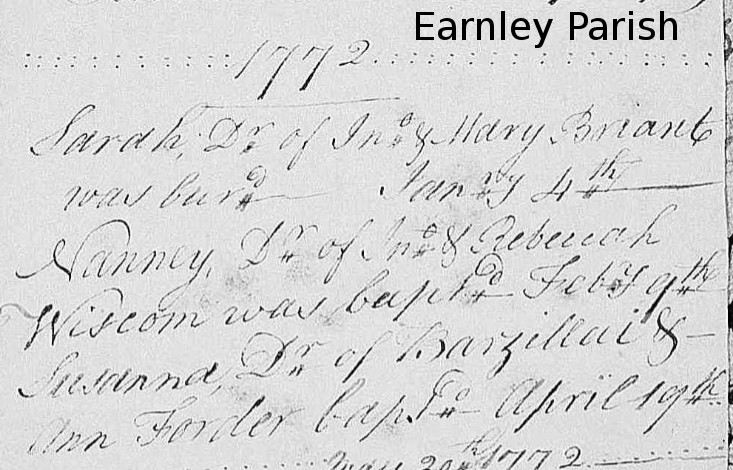 Earnley Parish
1772
Sarah, Dr. of Jno. & Mary Briant
was burd. Janry 4th
Nanney, Dr. of Jno. & Rebeccah
Wiscom was baptd. Feby 9th
Susanna, Dr. of Barzillai &
Ann Forder baptd. April 19th
May 20th 1772